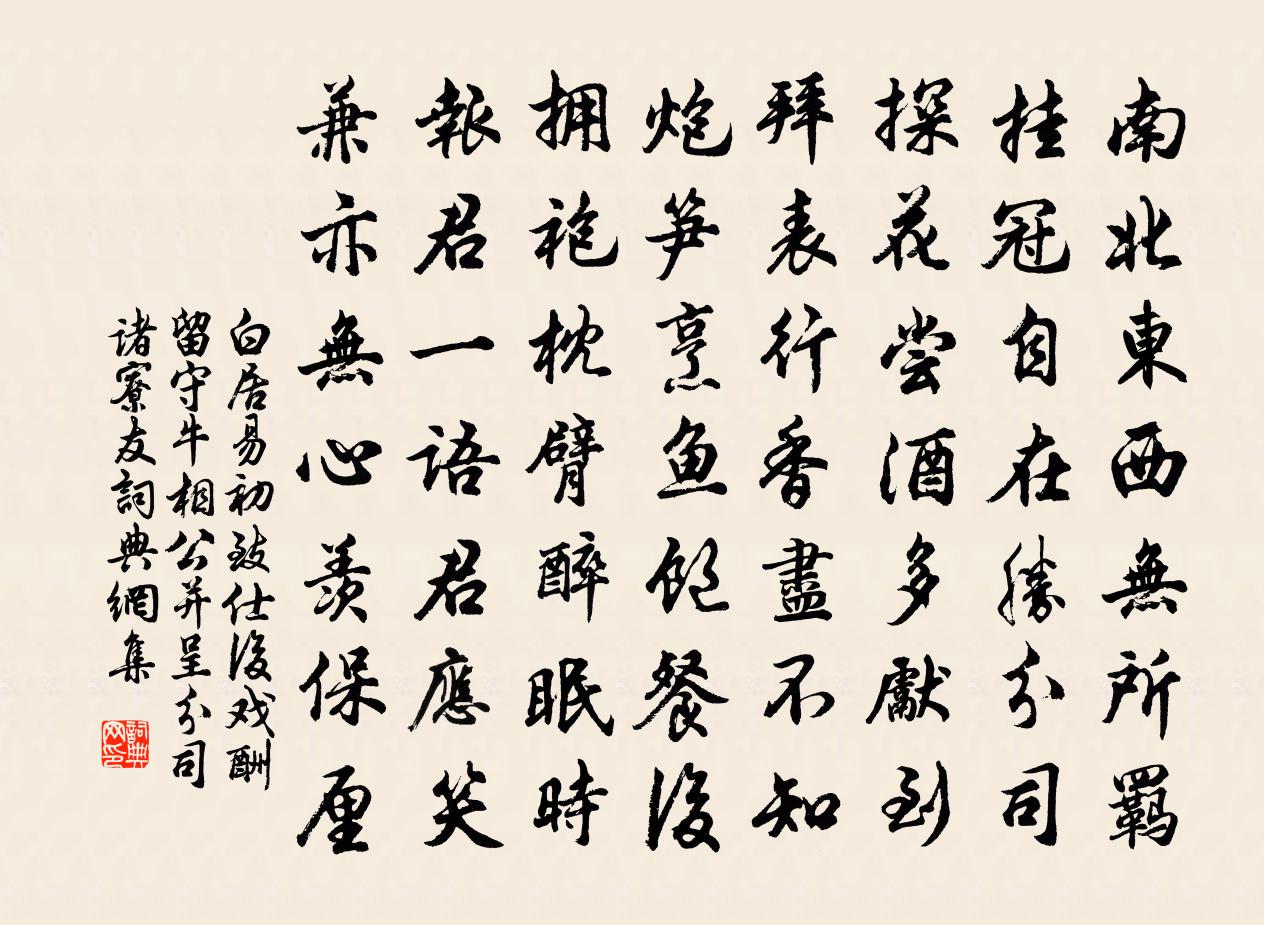 南北東西無所羈
挂冠自在勝分司
探花嘗酒多獻到
拜表行香盡不知
炮笋烹魚飽餐後
拥袍枕臂醉眠時
報君一語君應笑
兼亦無心羨保厘
白居易初致仕後戏酬
留守牛相公并呈分司
諸寮友詞典網集
詞典网印